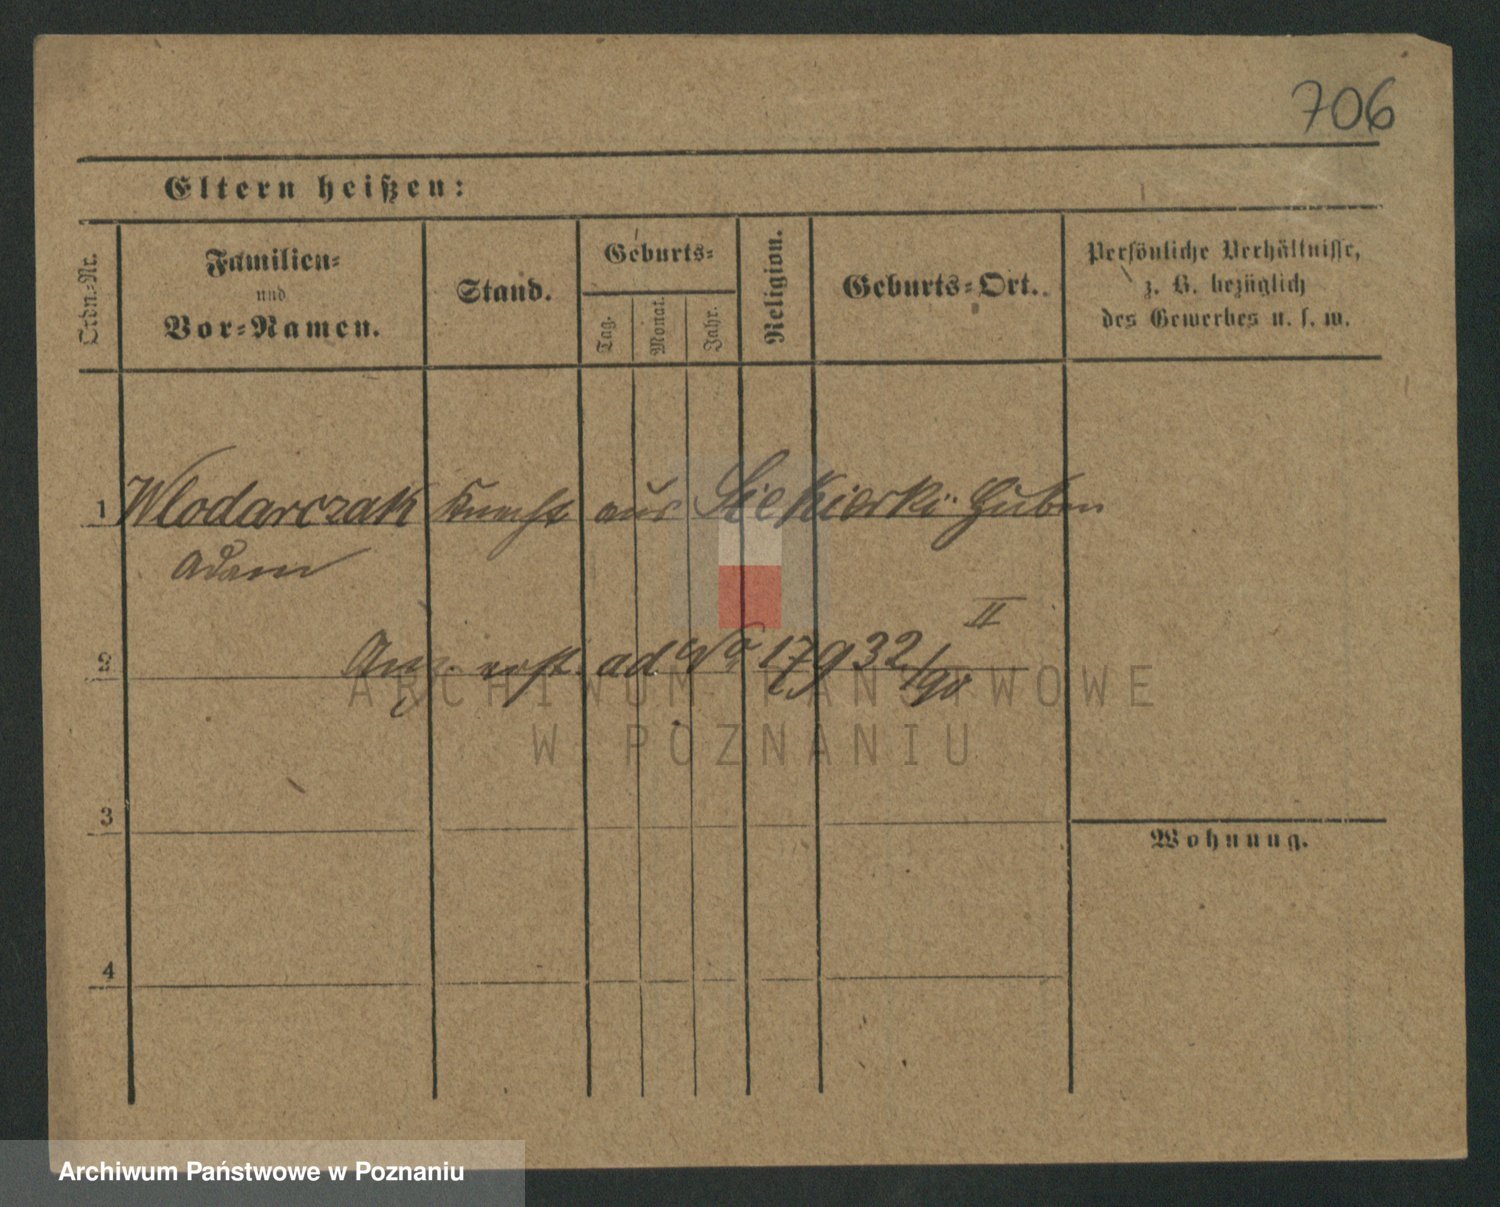 706
Eltern heißen:
Ordn.-Nr.
Familien-
und
Vor-Namen.
Stand.
Geburts-
Tag.
Monat.
Jahr.
Religion.
Geburts-Ort.
Persönliche Verhältnisse,
z. B. bezüglich
des Gewerbes u. s. w.
1 Wlodarczak Knecht aus Siekierki Huben
Adam
II
2 ad No 17932/90
ARCHIWUM PAŃSTWOWE
W POZNANIU
3
Wohnung.
4
Archiwum Państwowe w Poznaniu